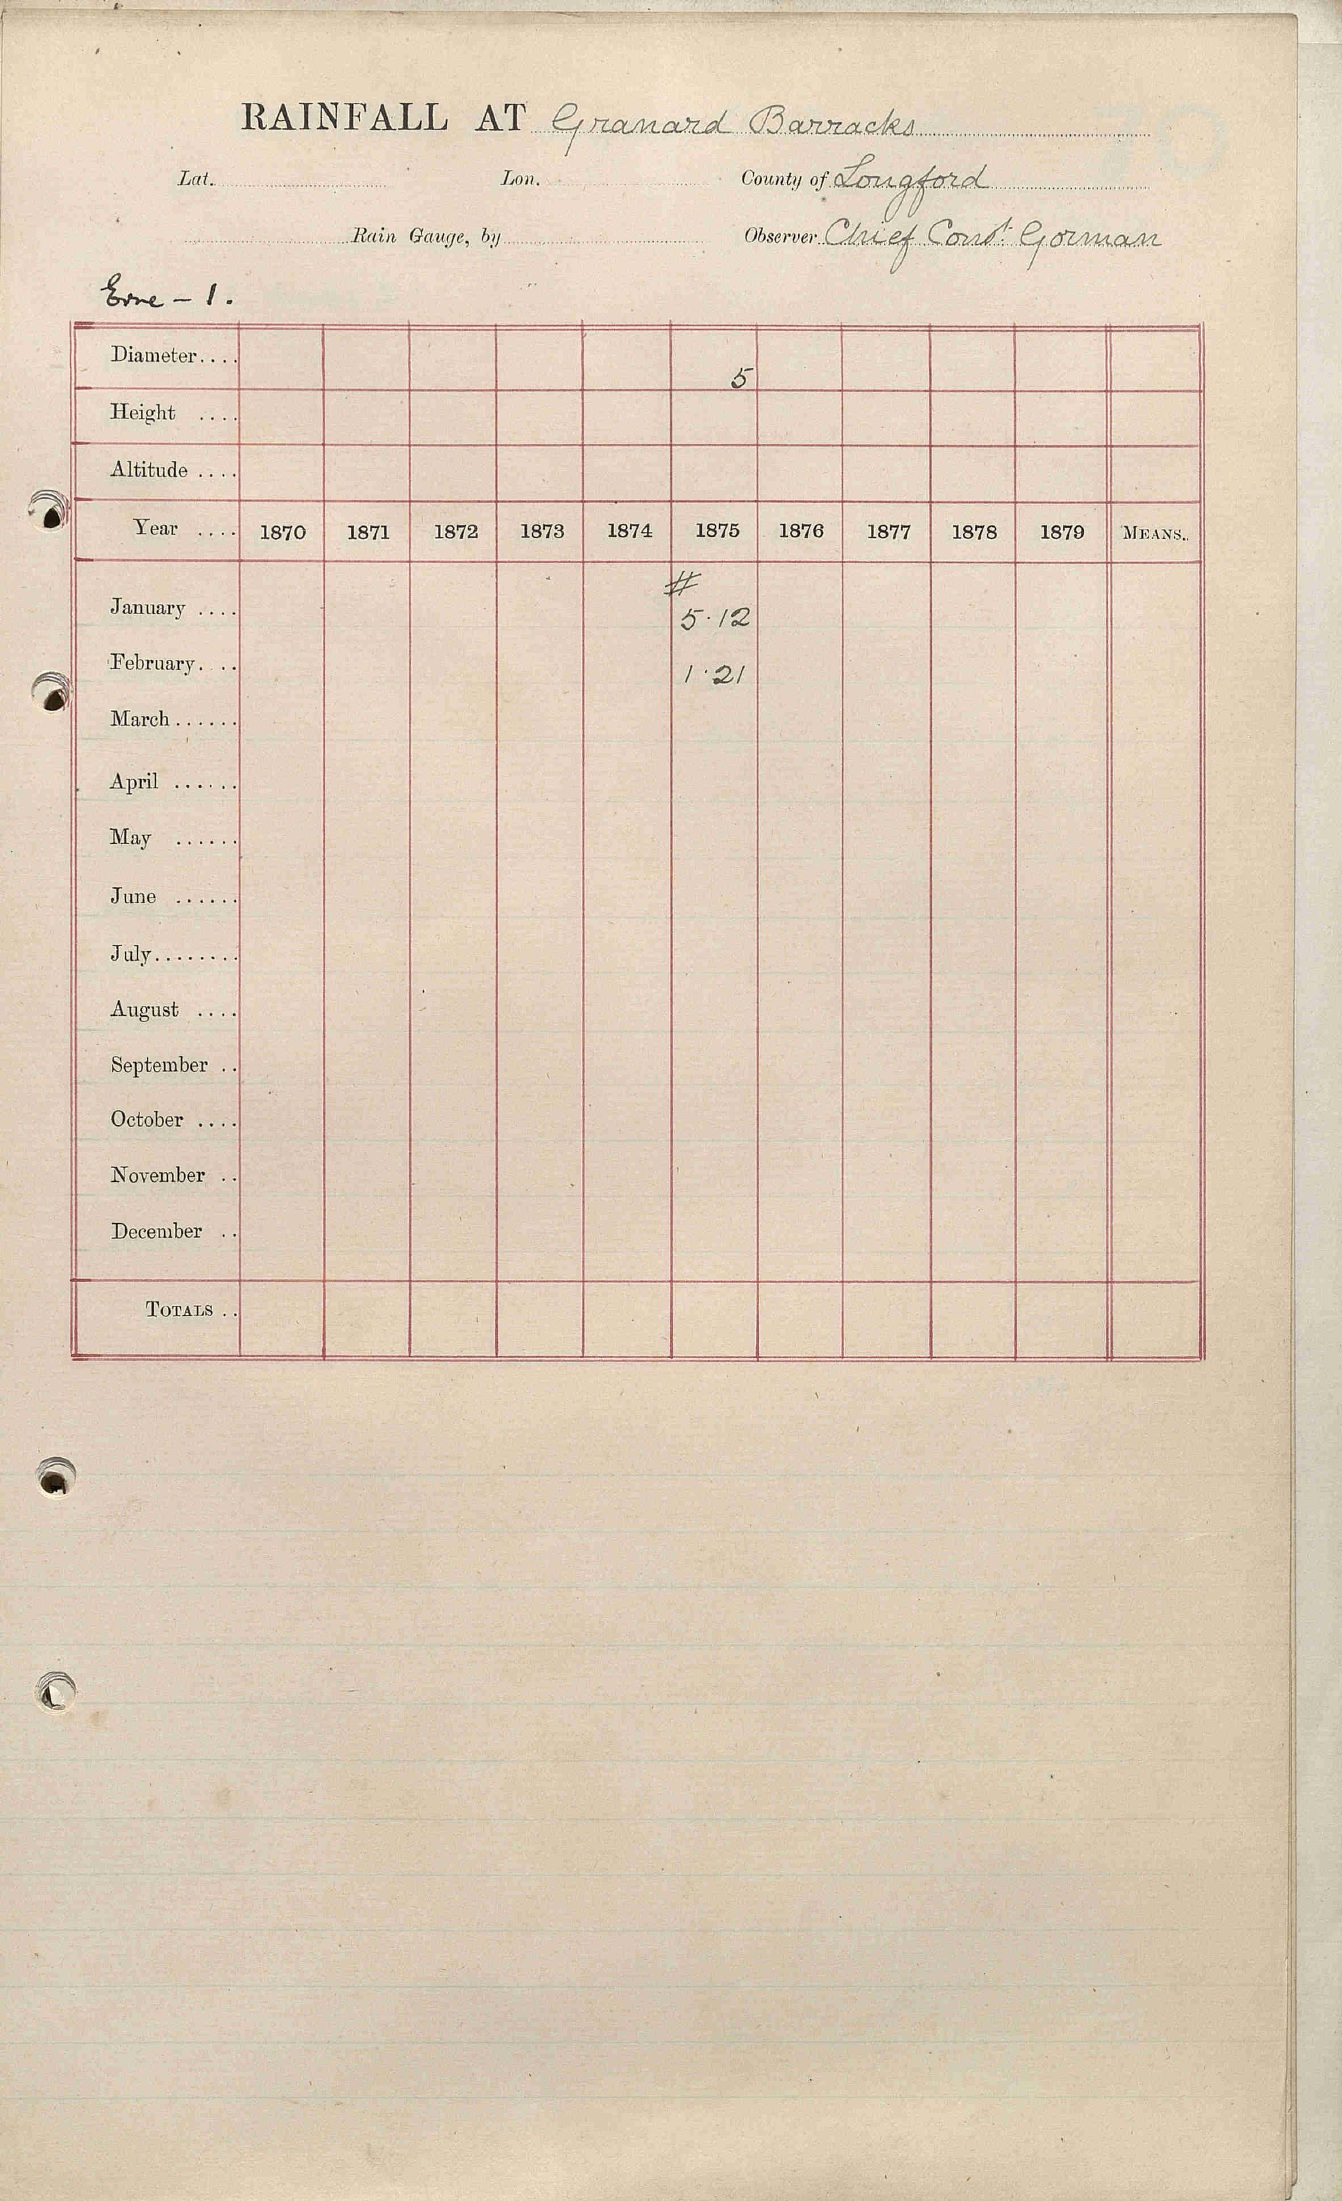 RAINFALL AT Granard Barracks
Lat. Lon. County of Longford
Rain Gauge, by Observer Chief Const. Gorman
Erne - 1.
Diameter.... 5
Height ....
Altitude ....
Year .... 1870 1871 1872 1873 1874 1875 1876 1877 1878 1879 MEANS.
#
January .... 5.12
February.... 1.21
March......
April ......
May ......
June ......
July........
August ....
September ..
October ....
November ..
December ..
TOTALS ..